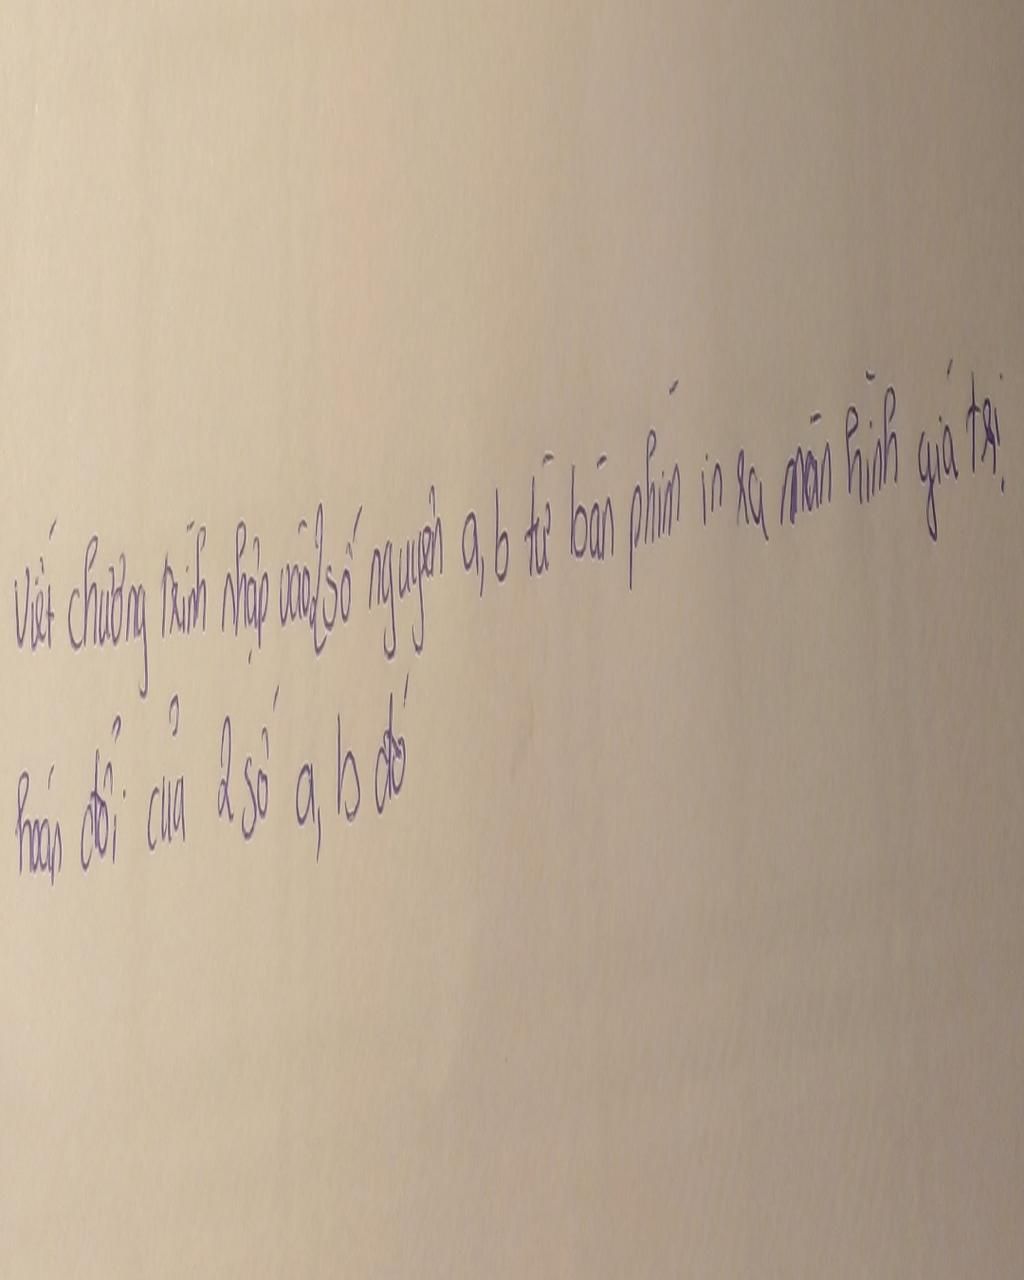 Viết chương trình nhập vào 2 số nguyên a, b từ bàn phím in ra màn hình giá trị
hoán đổi của 2 số a, b đó